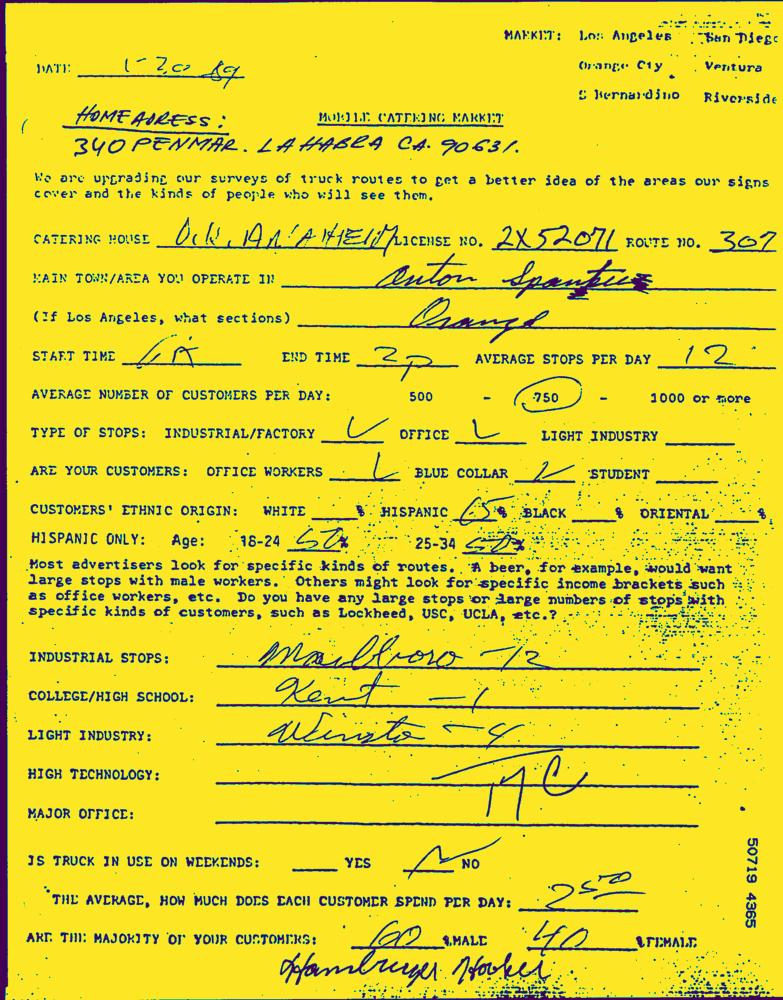 MARKET: Los Angeles San Diego
DATE 1-20 89 Orange Cty Ventura
S Bernardino Riverside
HOME ADRESS: MOBILE CATERING MARKET
340 PENMAR. LA HABRA CA. 90631.
We are upgrading our surveys of truck routes to get a better idea of the areas our signs
cover and the kinds of people who will see them.
CATERING HOUSE ANAHEIM LICENSE NO. 2X52071 ROUTE NO. 307
MAIN TOWN/AREA YOU OPERATE IN
(If Los Angeles, what sections) Orange
START TIME END TIME 2p AVERAGE STOPS PER DAY 12
AVERAGE NUMBER OF CUSTOMERS PER DAY: 500 - 750 - 1000 or more
TYPE OF STOPS: INDUSTRIAL/FACTORY OFFICE LIGHT INDUSTRY
ARE YOUR CUSTOMERS: OFFICE WORKERS BLUE COLLAR STUDENT
CUSTOMERS' ETHNIC ORIGIN: WHITE % HISPANIC 65% BLACK % ORIENTAL %
HISPANIC ONLY: Age: 18-24 50% 25-34 50%
Most advertisers look for specific kinds of routes. A beer, for example, would want
large stops with male workers. Others might look for specific income brackets such
as office workers, etc. Do you have any large stops or large numbers of stops with
specific kinds of customers, such as Lockheed, USC, UCLA, etc.?
INDUSTRIAL STOPS: Marlboro - 12
COLLEGE/HIGH SCHOOL: Kent - 1
LIGHT INDUSTRY: Winsto - 4
HIGH TECHNOLOGY:
MAJOR OFFICE:
IS TRUCK IN USE ON WEEKENDS: YES NO
THE AVERAGE, HOW MUCH DOES EACH CUSTOMER SPEND PER DAY: 2 50
ARE THE MAJORITY OF YOUR CUSTOMERS: 60 %MALE 40 %FEMALE
50719 4365